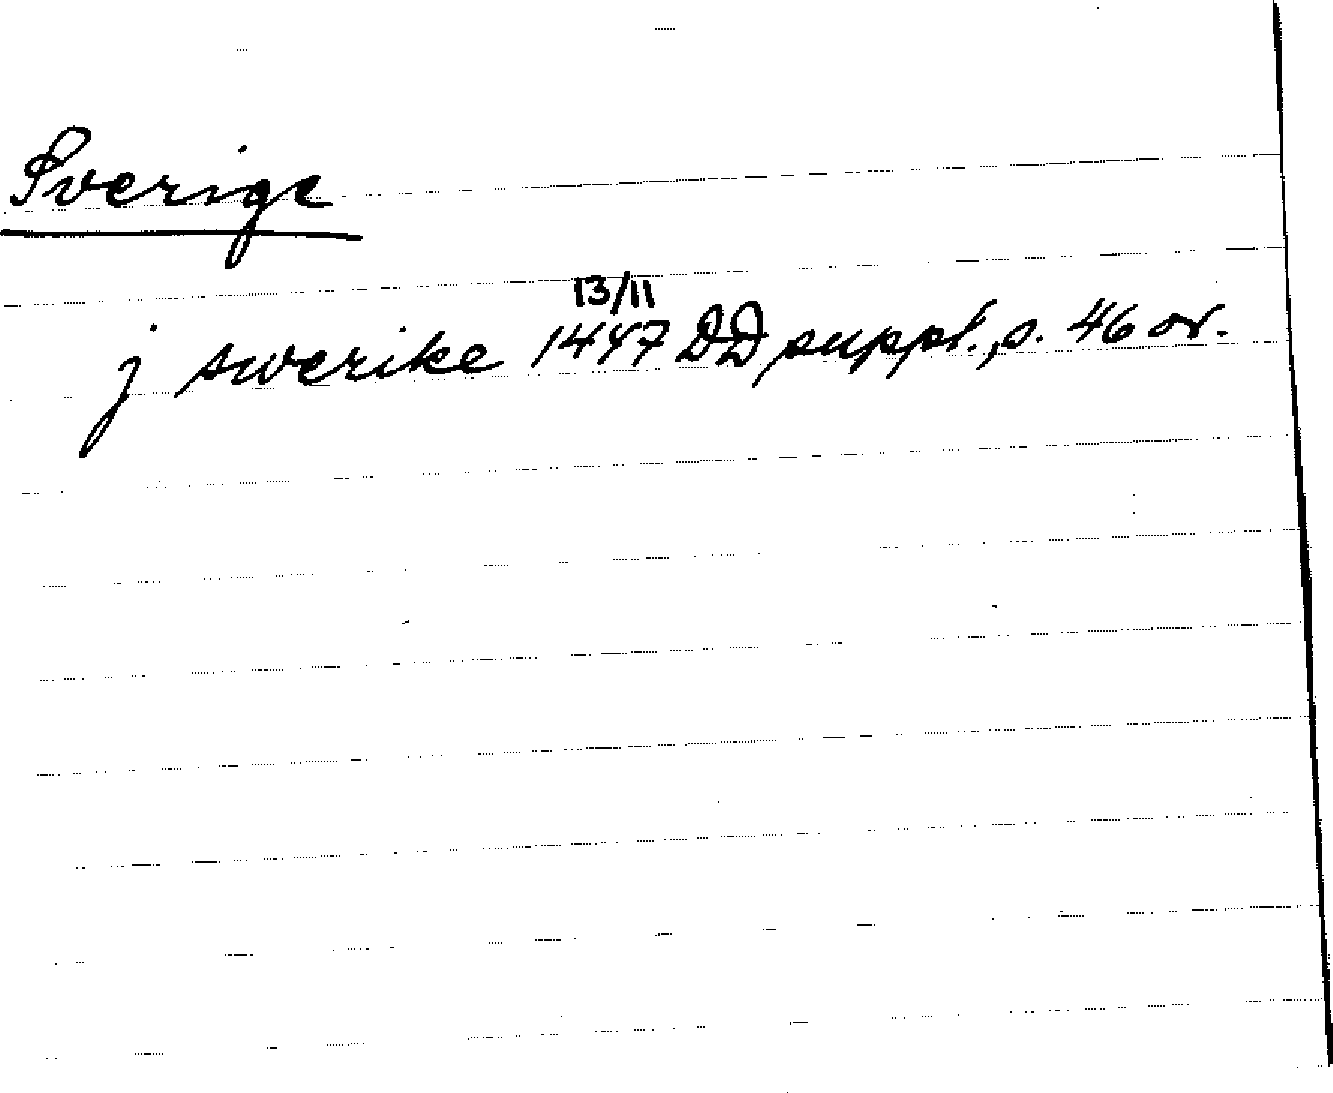 Sverige
13/11
j swerike 1447 DD suppl., s. 46 or.